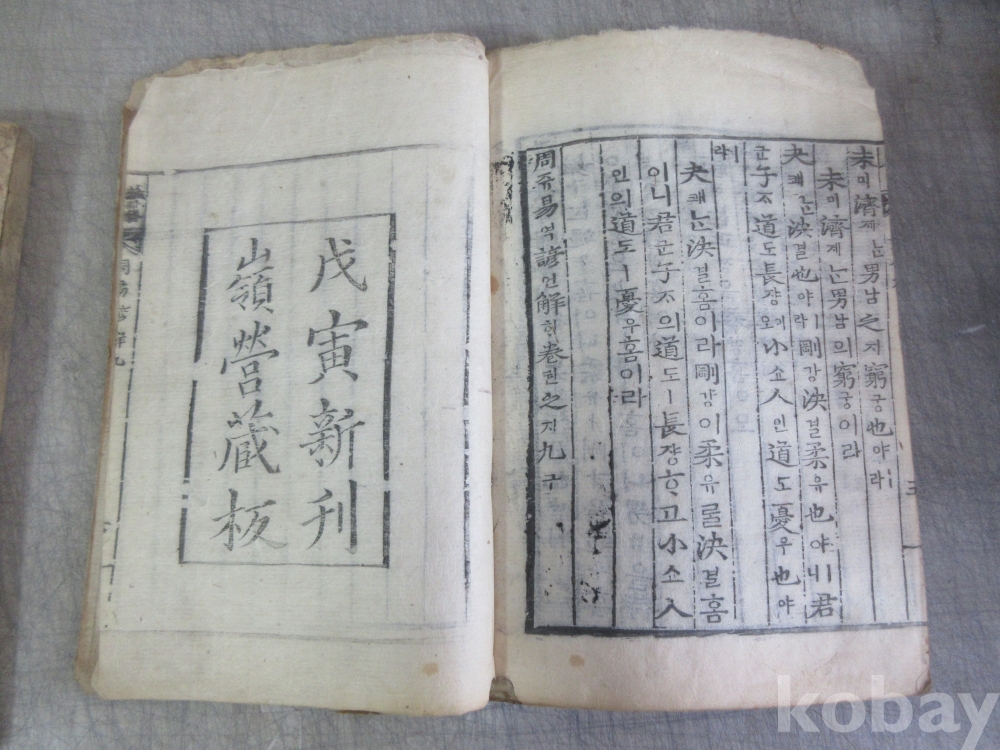 未미濟졔ᄂᆞᆫ男남之지窮궁也야ㅣ라
未미濟졔ᄂᆞᆫ男남의窮궁이라
夬쾌ᄂᆞᆫ決결也야ㅣ라剛강決결柔유也야ㅣ니君
군子ᄌᆞ道도長쟝이오小쇼人인道도憂우也야
ㅣ라
夬쾌ᄂᆞᆫ決결홈이라剛강이柔유ᄅᆞᆯ決결홈
이니君군子ᄌᆞ의道도ㅣ長쟝ᄒᆞ고小쇼人
인의道도ㅣ憂우홈이라
周쥬易역諺언解ᄒᆡ卷권之지九구
戊寅新刊
嶺營藏板
周易諺解九
kobay